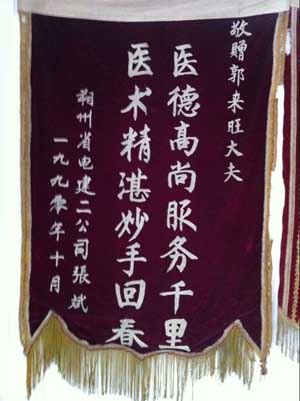 敬赠郭来旺大夫
医德高尚服务千里
医术精湛妙手回春
朔州省电建二公司張斌
一九九零年十月